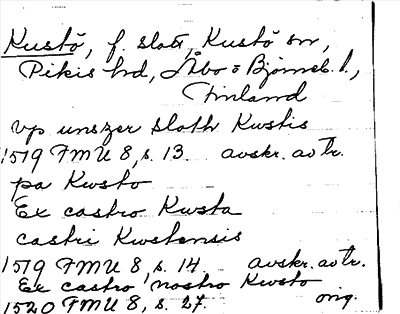 Kustö, f. slott, Kustö sn,
Pikis hd, Åbo o Björneb. l.,
Finland
vp unszer sloth Kwstis
1519 FMU 8, s. 13. avskr. av tr.
pa Kwsto
Ex castro Kwsta
castri Kwstensis
1519 FMU 8, s. 14 avskr. av tr.
Ex castro nostro Kwsto
1520 FMU 8, s. 27. orig.